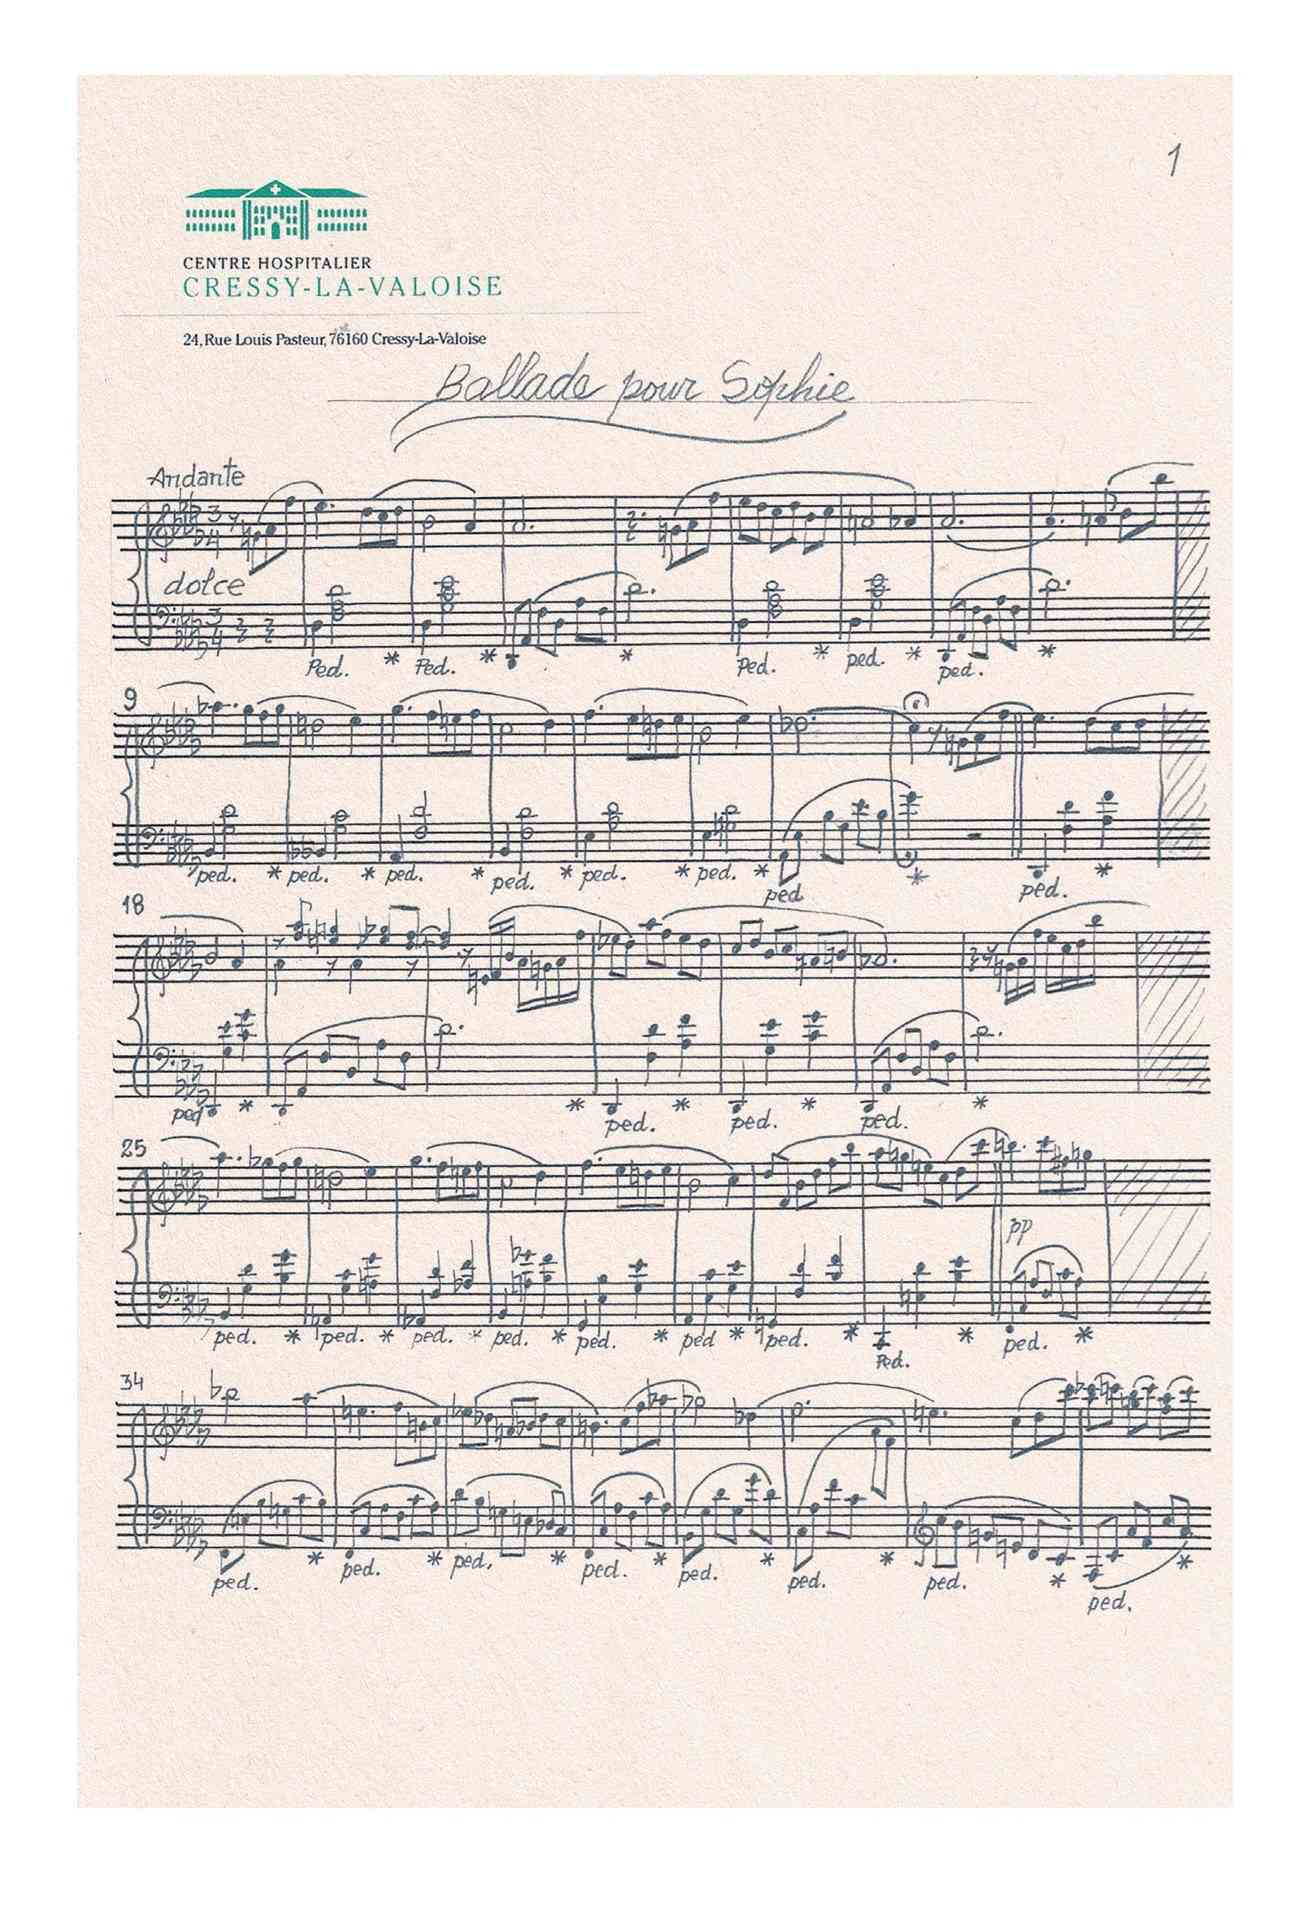 1
CENTRE HOSPITALIER
CRESSY-LA-VALOISE
24, Rue Louis Pasteur, 76160 Cressy-La-Valoise
Ballade pour Sophie
Andante
3 4
dolce
3 4
Ped. * Ped. * * Ped. * ped. * ped. *
9
ped. * ped. * ped. * ped. * ped. * ped. * ped * ped. *
18
ped * * ped. * ped. * ped. *
25
pp
ped. * ped. * ped. * ped. * ped. * ped * ped. * Ped. * ped. *
34
ped. * ped. * ped. * ped. * ped. * ped. * ped. * ped. *